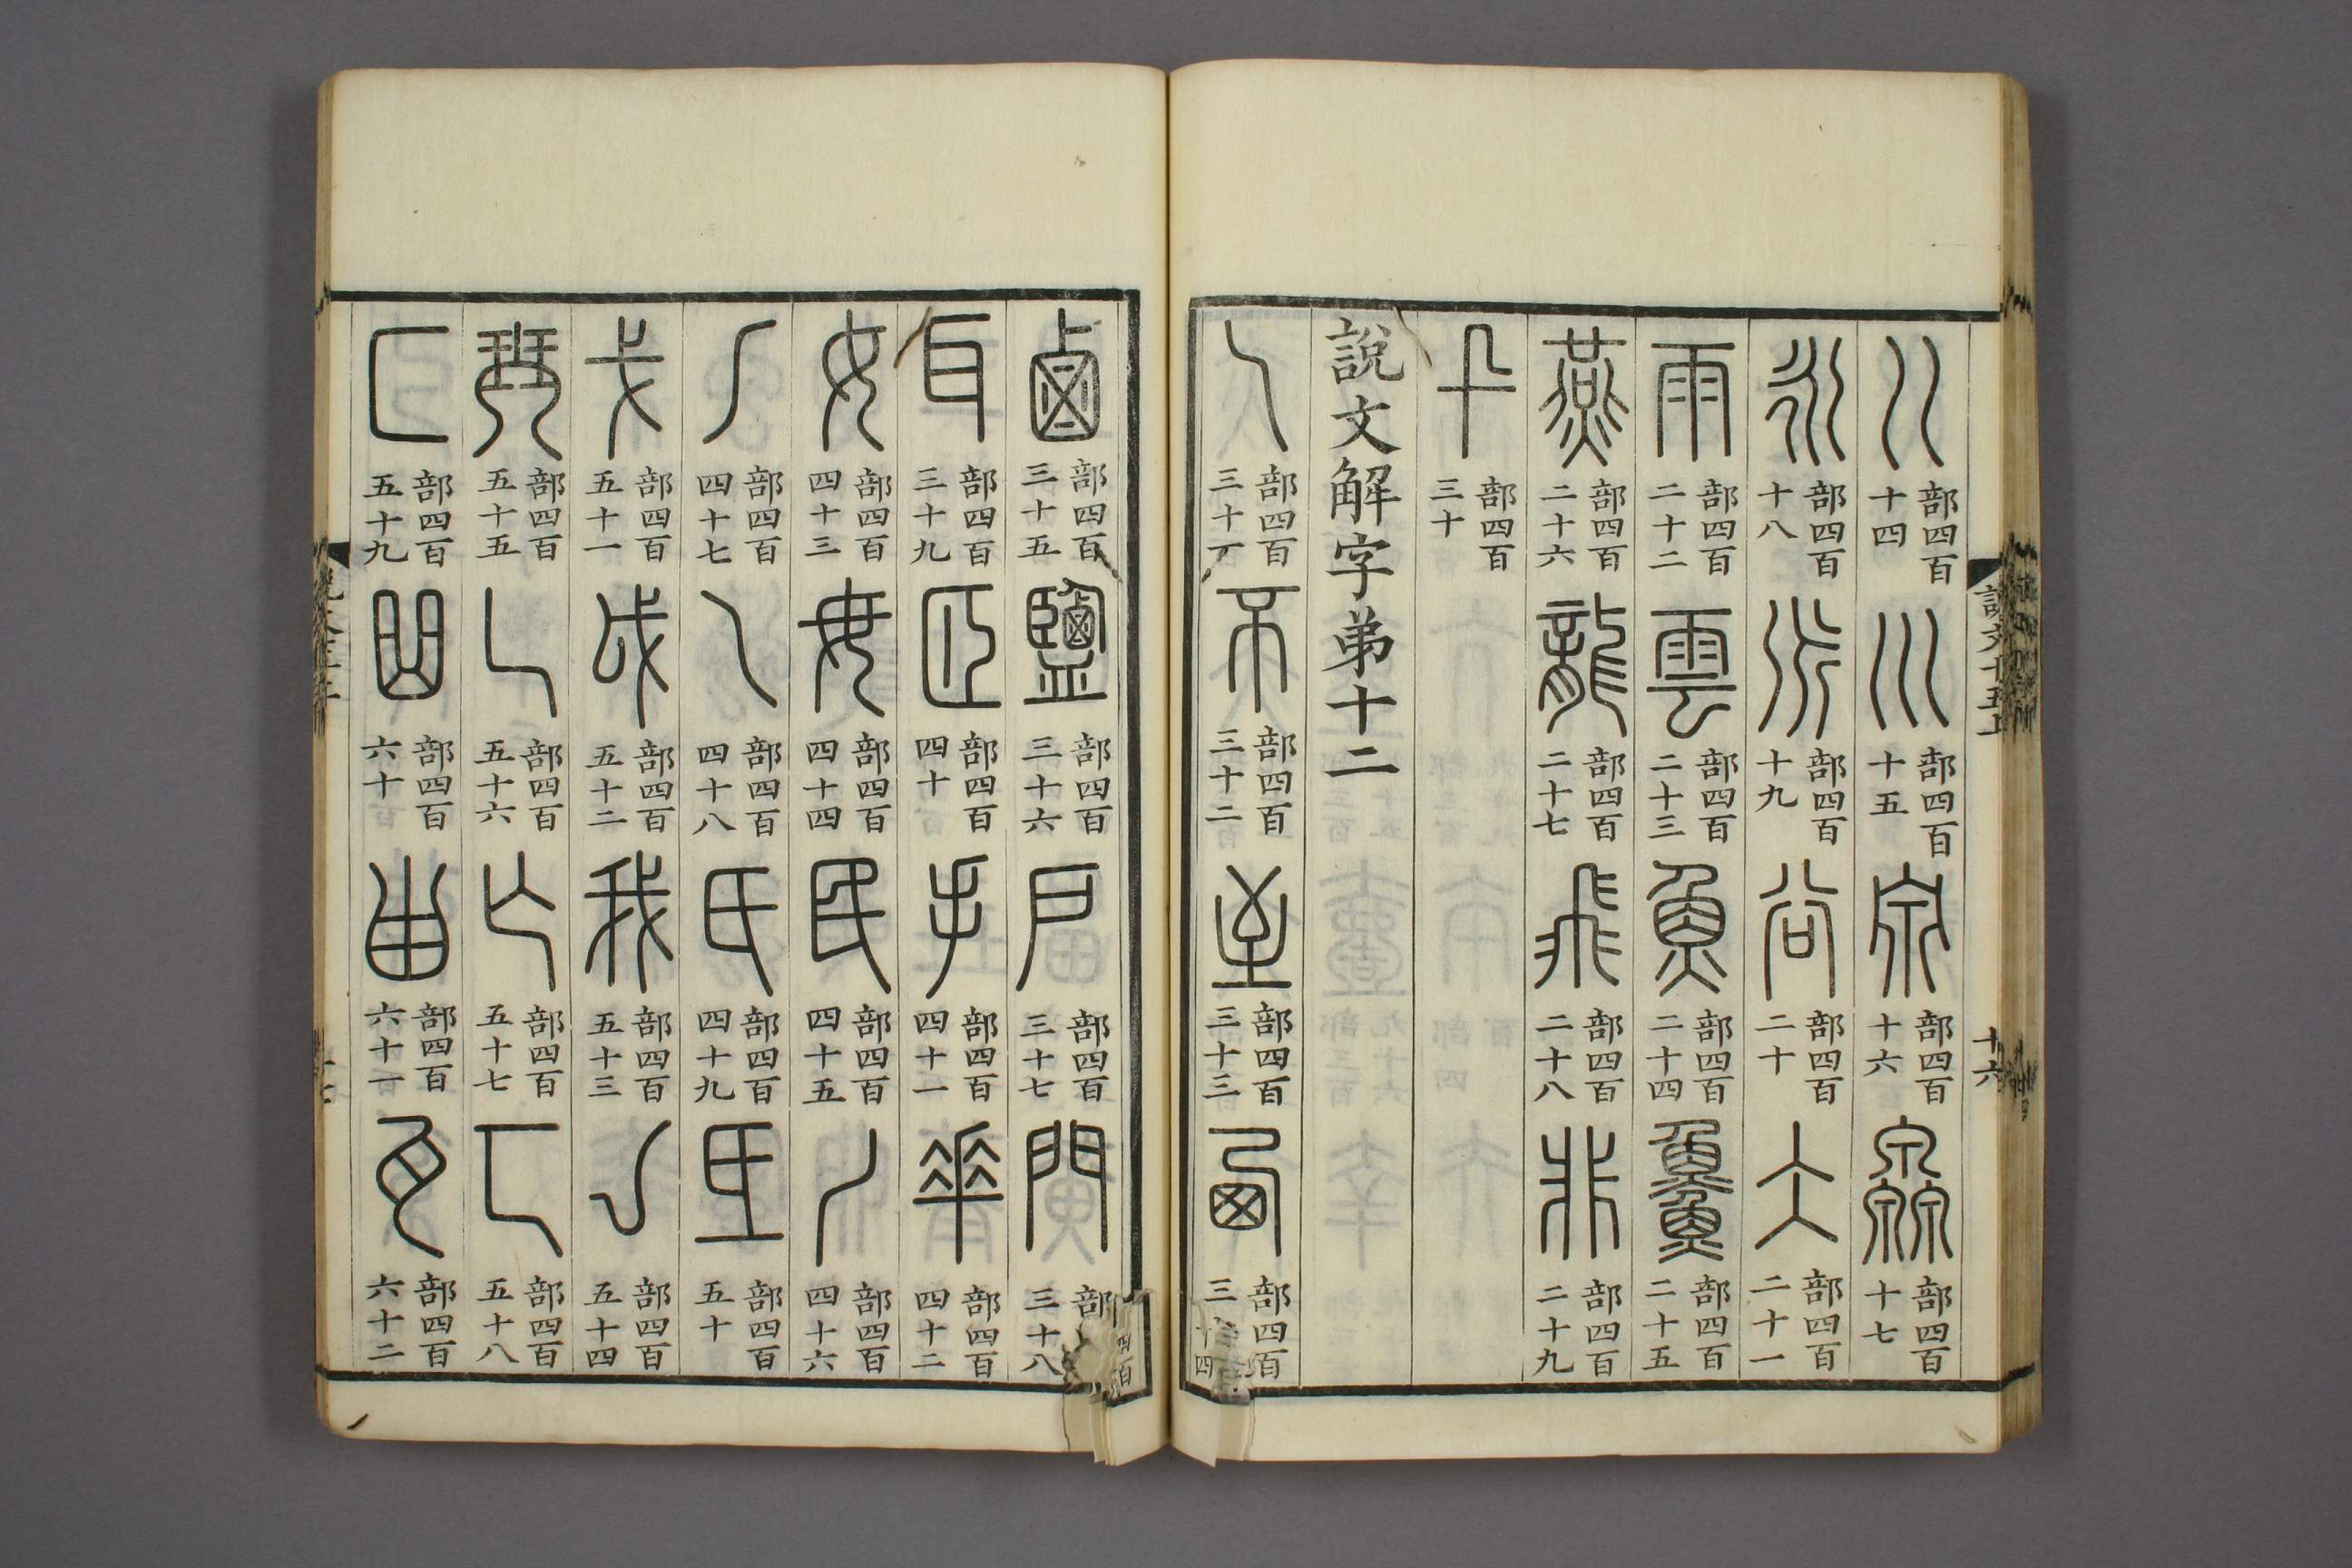 說文十五上 十六
巜 部四百十四 川 部四百十五 泉 部四百十六 灥 部四百十七
永 部四百十八 𠂢 部四百十九 谷 部四百二十 仌 部四百二十一
雨 部四百二十二 雲 部四百二十三 魚 部四百二十四 𩺰 部四百二十五
燕 部四百二十六 龍 部四百二十七 飛 部四百二十八 非 部四百二十九
卂 部四百三十
說文解字弟十二
乙 部四百三十一 不 部四百三十二 至 部四百三十三 西 部四百三十四
鹵 部四百三十五 鹽 部四百三十六 戶 部四百三十七 門 部四百三十八
耳 部四百三十九 𦣞 部四百四十 手 部四百四十一 𠦬 部四百四十二
女 部四百四十三 毋 部四百四十四 民 部四百四十五 丿 部四百四十六
𠂆 部四百四十七 乁 部四百四十八 氏 部四百四十九 氐 部四百五十
戈 部四百五十一 戉 部四百五十二 我 部四百五十三 亅 部四百五十四
琴 部四百五十五 乚 部四百五十六 亾 部四百五十七 匸 部四百五十八
匚 部四百五十九 曲 部四百六十 甾 部四百六十一 瓦 部四百六十二